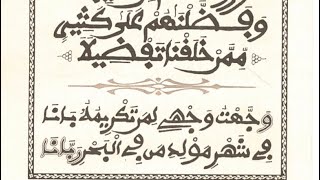 وَفَضَّلْنَٰهُمْ عَلَىٰ كَثِيرٍ
مِّمَّنْ خَلَقْنَا تَفْضِيلًا
وَجَّهْتُ وَجْهِيَ لِمَن تَكْرِيمُهُ بَانَا
فِي شَهْرِ مَوْلِدِ مَن فِي الْبَحْرِ رَبَّانَا